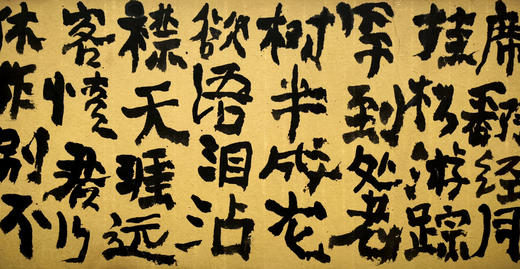 席翻经月
挂杉游踪
系到处老
树半成龙
欲语泪沾
襟天涯远
客情君行
休作别不